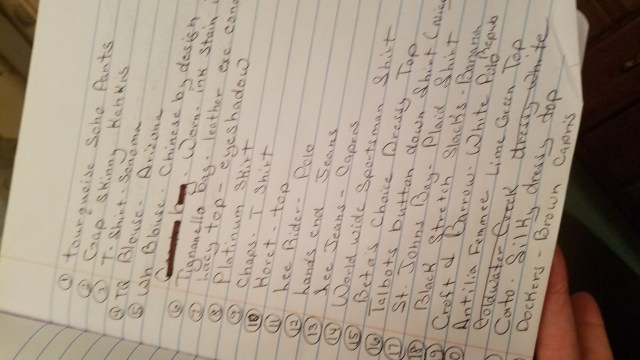 ① tourquoise Soho Pants
② Gap Skinny Kahkis
③ T-Shirt-Sonoma
④ TQ Blouse- Arizona
⑤ Wh Blouse- Chinese by design
⑥ Tignanello bag- Worn- ink stain
⑦ Lacy top- leather exc cond
⑧ Platinum- eyeshadow
⑨ Chaps- Skirt
⑩ Koret- T Shirt
⑪ Lee Rider- top
⑫ Lands end- Polo
⑬ Lee Jeans- Jeans
⑭ World wide Sportsman- Capris
⑮ Beta's Choice Shirt
⑯ Talbots button Dressy Top
⑰ St. Johns Bay- down Shirt
⑱ Black Stretch Plaid Shirt
Croft & Barrow- Slacks-
Antilia Femmee White Polo
Goldwater Creek Lime Green Top
Cato- Silky dressy White
Dockers- Brown Capris dressy top